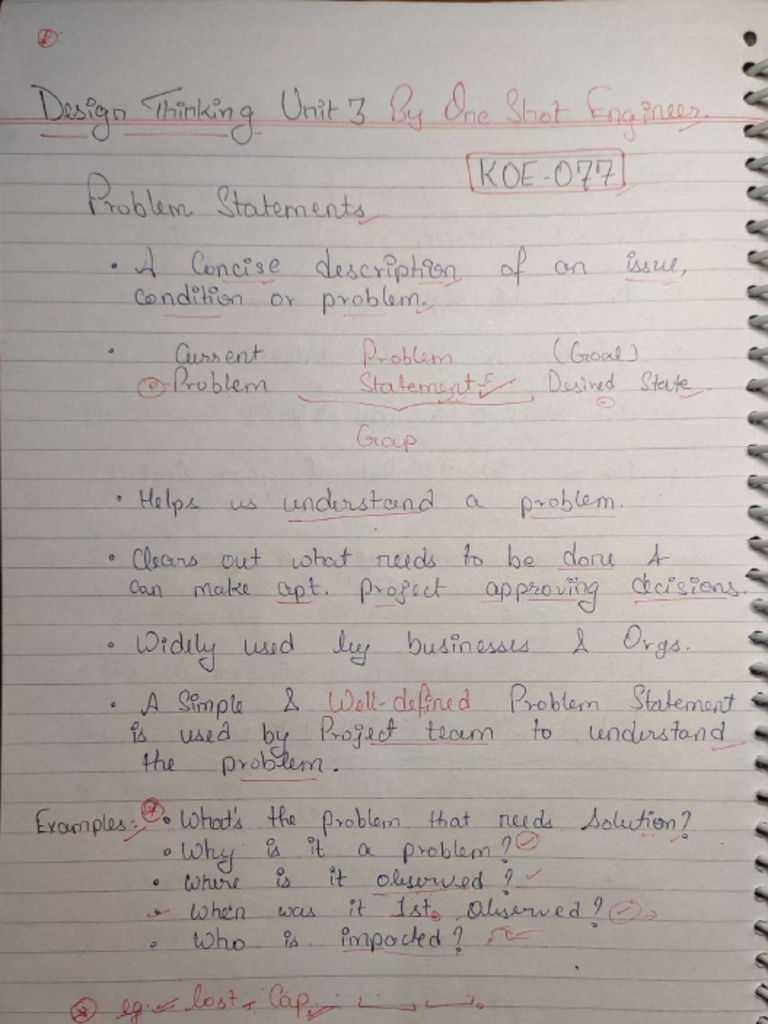 Design Thinking Unit 3 By One Shot Engineer
KOE-077
Problem Statements
• A Concise description of an issue,
condition or problem.
• Current Problem (Goal)
Problem Statement Desired State
Gap
• Helps us understand a problem.
• Clears out what needs to be done &
can make apt. project approving decisions.
• Widely used by businesses & Orgs.
• A Simple & Well-defined Problem Statement
is used by Project team to understand
the problem.
Examples: • What's the problem that needs solution?
• Why is it a problem?
• Where is it observed?
When was it 1st Observed?
• Who is impacted?
eg. lost Cap